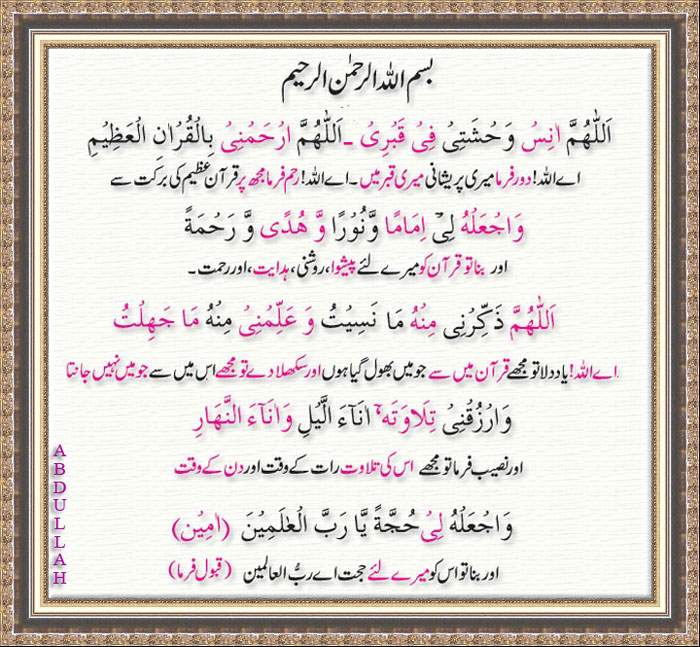 بسم اللہ الرحمٰن الرحیم
اَللّٰهُمَّ اٰنِسْ وَحْشَتِیْ فِیْ قَبْرِیْ ۔ اَللّٰهُمَّ ارْحَمْنِیْ بِالْقُرْاٰنِ الْعَظِیْمِ
اے اللہ! دور فرما میری پریشانی میری قبر میں۔ اے اللہ! رحم فرما مجھ پر قرآن عظیم کی برکت سے
وَاجْعَلْهُ لِیْ اِمَامًا وَّنُوْرًا وَّ هُدًی وَّ رَحْمَةً
اور بنا تو قرآن کو میرے لئے پیشوا، روشنی، ہدایت، اور رحمت۔
اَللّٰهُمَّ ذَکِّرْنِی مِنْهُ مَا نَسِیْتُ وَ عَلِّمْنِیْ مِنْهُ مَا جَهِلْتُ
اے اللہ! یاد دلا تو مجھے قرآن میں سے جو میں بھول گیا ہوں اور سکھلا دے تو مجھے اس میں سے جو میں نہیں جانتا
وَارْزُقْنِیْ تِلَاوَتَهٗ اٰنَآءَ الَّیْلِ وَاٰنَآءَ النَّهَارِ
اور نصیب فرما تو مجھے اس کی تلاوت رات کے وقت اور دن کے وقت
وَاجْعَلْهُ لِیْ حُجَّةً یَّا رَبَّ الْعٰلَمِیْنَ (اٰمِیْن)
اور بنا تو اس کو میرے لئے حجت اے ربُّ العالمین (قبول فرما)
ABDULLAH